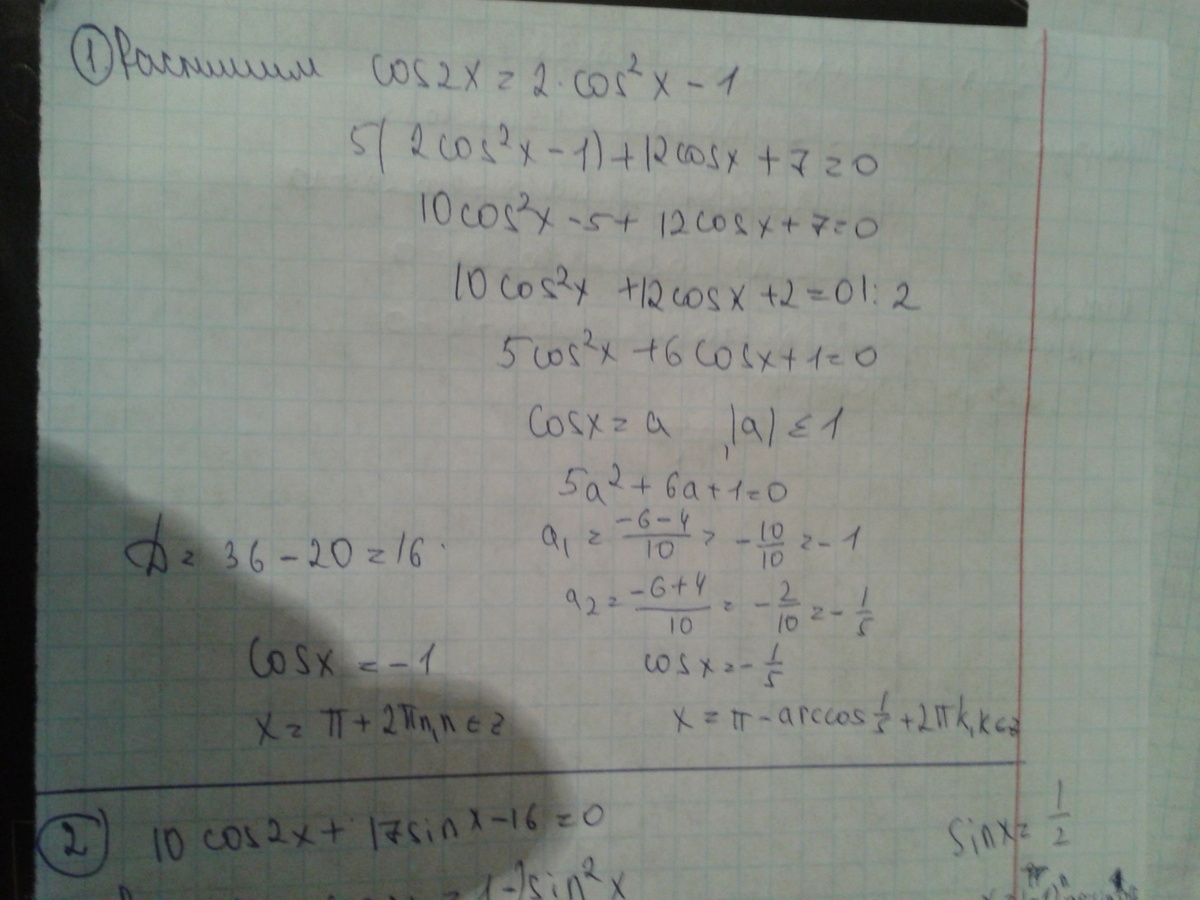 ① Распишим cos2x = 2·cos²x - 1
5( 2cos²x - 1) + 12cosx + 7 = 0
10cos²x - 5 + 12cosx + 7 = 0
10cos²x + 12cosx + 2 = 0 |: 2
5cos²x + 6cosx + 1 = 0
cosx = a , |a| ≤ 1
5a² + 6a + 1 = 0
D = 36 - 20 = 16
a₁ = (-6-4)/10 = -10/10 = -1
a₂ = (-6+4)/10 = -2/10 = -1/5
cosx = -1
cosx = -1/5
x = π + 2πn, n ∈ z
x = π - arccos 1/5 + 2πk, k ∈ z
② 10cos2x + 17sinx - 16 = 0
sinx = 1/2
sin²x